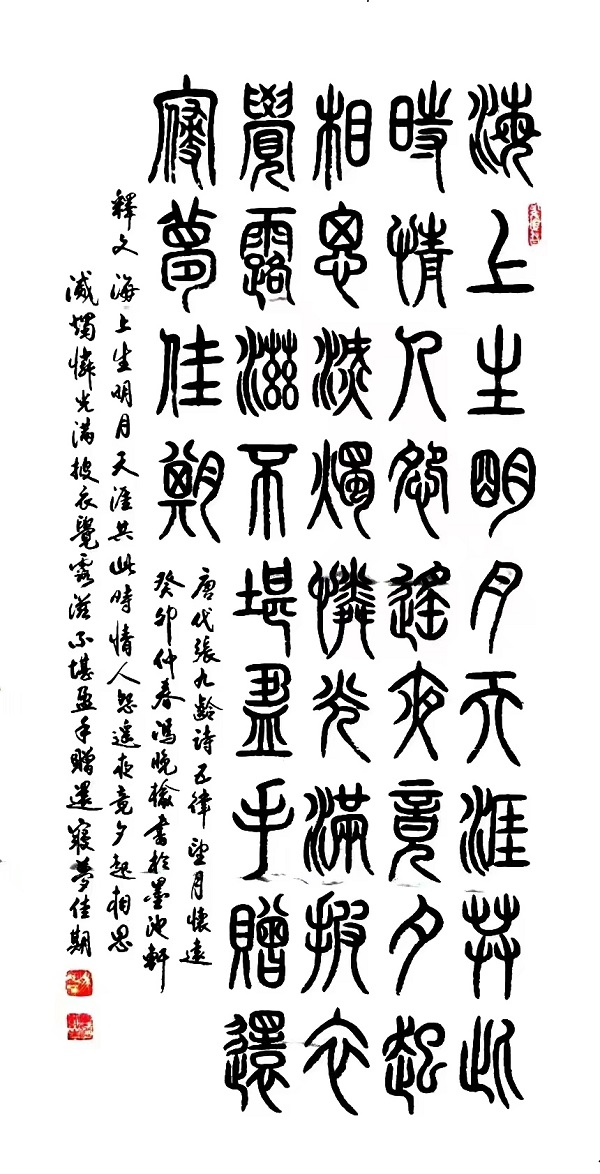 海上生明月天涯共此
時情人怨遙夜竟夕起
相思滅燭憐光滿披衣
覺露滋不堪盡手贈還
寢夢佳期
唐代張九齡詩五律望月懷遠
癸卯仲春馮晚榆書於墨池軒
釋文 海上生明月天涯共此時情人怨遙夜竟夕起相思
滅燭憐光滿披衣覺露滋不堪盈手贈還寢夢佳期